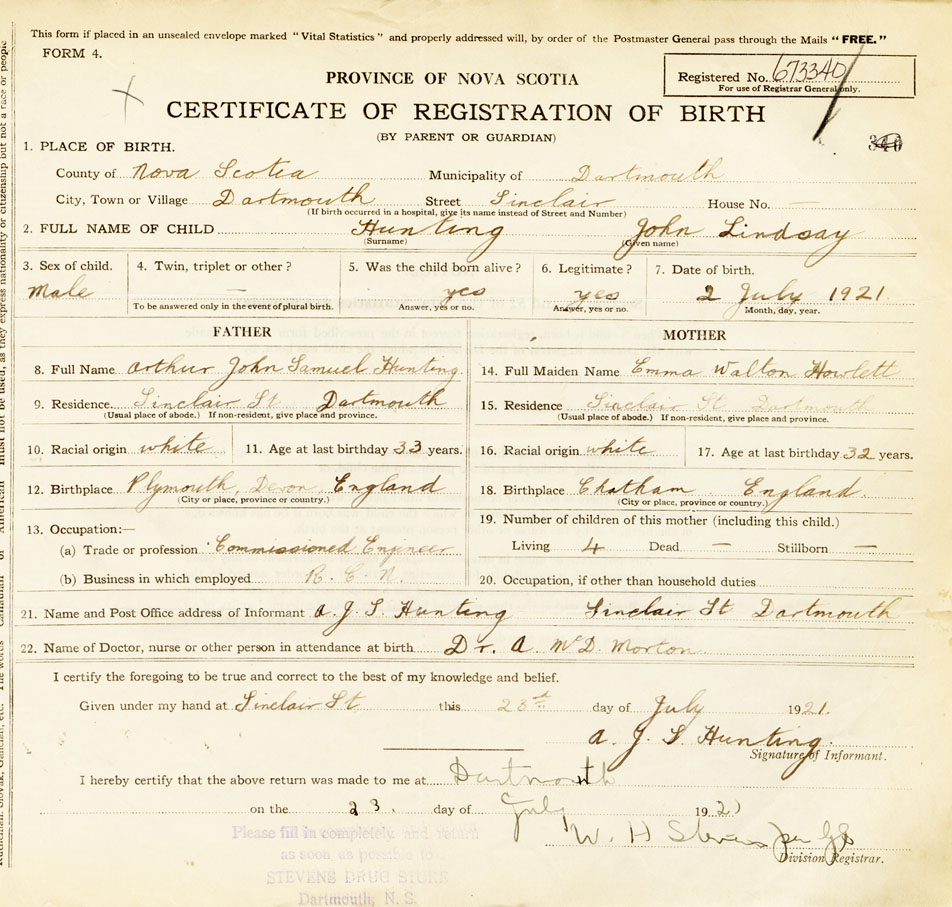 This form if placed in an unsealed envelope marked "Vital Statistics" and properly addressed will, by order of the Postmaster General pass through the Mails "FREE."
FORM 4.
Registered No. 673340
For use of Registrar General only.
PROVINCE OF NOVA SCOTIA
CERTIFICATE OF REGISTRATION OF BIRTH
(BY PARENT OR GUARDIAN)
340
1. PLACE OF BIRTH.
County of Nova Scotia Municipality of Dartmouth
City, Town or Village Dartmouth Street Sinclair House No. —
(If birth occurred in a hospital, give its name instead of Street and Number)
2. FULL NAME OF CHILD Hunting John Lindsay
(Surname) (Given name)
3. Sex of child. 4. Twin, triplet or other? 5. Was the child born alive? 6. Legitimate? 7. Date of birth.
Male — yes yes 2 July 1921
To be answered only in the event of plural birth. Answer, yes or no. Answer, yes or no. Month, day, year.
FATHER
8. Full Name Arthur John Samuel Hunting
9. Residence Sinclair St Dartmouth
(Usual place of abode.) If non-resident, give place and province.
10. Racial origin white 11. Age at last birthday 33 years.
12. Birthplace Plymouth, Devon, England
(City or place, province or country.)
13. Occupation:—
(a) Trade or profession Commissioned Engineer
(b) Business in which employed R. C. N.
MOTHER
14. Full Maiden Name Emma Walton Howlett
15. Residence Sinclair St Dartmouth
(Usual place of abode.) If non-resident, give place and province.
16. Racial origin white 17. Age at last birthday 32 years.
18. Birthplace Chatham England.
(City or place, province or country.)
19. Number of children of this mother (including this child.)
Living 4 Dead — Stillborn —
20. Occupation, if other than household duties
21. Name and Post Office address of Informant A. J. S. Hunting Sinclair St Dartmouth
22. Name of Doctor, nurse or other person in attendance at birth Dr. A. McD. Morton
I certify the foregoing to be true and correct to the best of my knowledge and belief.
Given under my hand at Sinclair St this 23rd day of July 1921.
A. J. S. Hunting.
Signature of Informant.
I hereby certify that the above return was made to me at Dartmouth
on the 23. day of July 1921
W. H Stevens per
Division Registrar.
Please fill in completely and return
as soon as possible to
STEVENS DRUG STORE
Dartmouth, N. S.